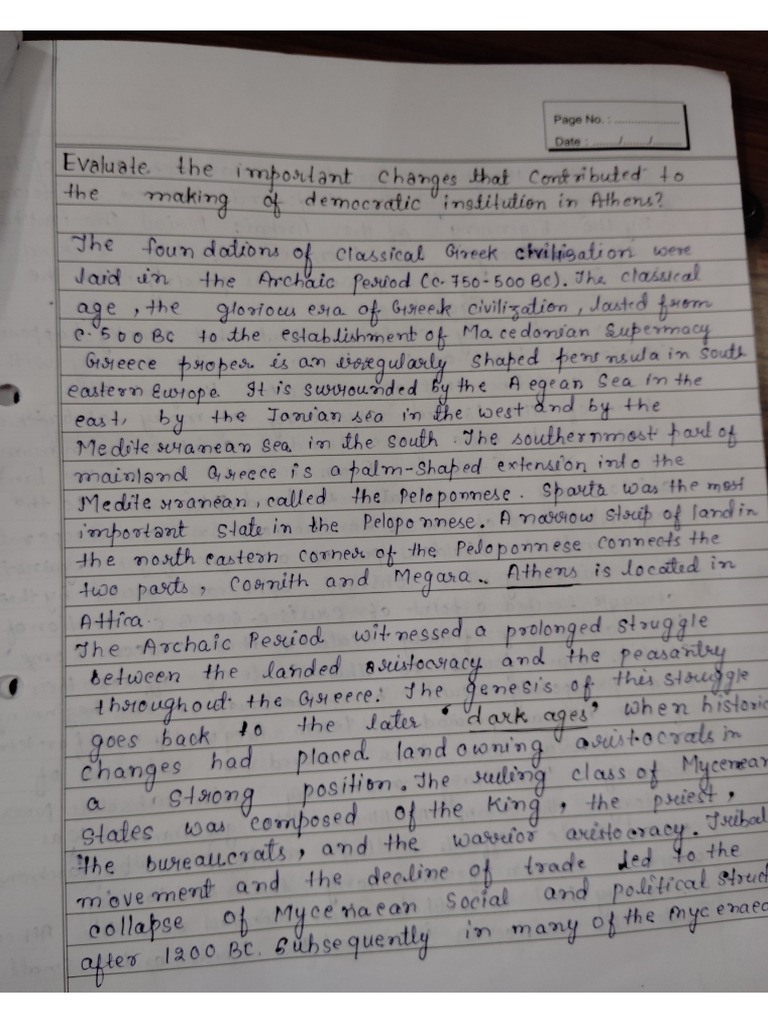 Page No. : ....................
Date : ......../......../........
Evaluate the important changes that contributed to
the making of democratic institution in Athens?
The foundations of classical Greek civilisation were
laid in the Archaic Period (c. 750-500 BC). The classical
age, the glorious era of Greek civilization, lasted from
c. 500 BC to the establishment of Macedonian Supermacy
Greece proper is an irregularly shaped peninsula in South
eastern Europe. It is surrounded by the Aegean Sea in the
east, by the Ionian sea in the west and by the
Mediterranean Sea in the south. The southernmost part of
mainland Greece is a palm-shaped extension into the
Mediterranean, called the Peloponnese. Sparta was the most
important state in the Peloponnese. A narrow strip of land in
the north eastern corner of the Peloponnese connects the
two parts, Cornith and Megara. Athens is located in
Attica.
The Archaic Period witnessed a prolonged struggle
between the landed aristocracy and the peasantry
throughout the Greece. The genesis of this struggle
goes back to the later 'dark ages' when historic
changes had placed land owning aristocrats in
a strong position. The ruling class of Mycenean
states was composed of the King, the priest,
the bureaucrats, and the warrior aristocracy. Tribal
movement and the decline of trade led to the
collapse of Mycenaean social and political struct
after 1200 BC. Subsequently in many of the Mycenaea